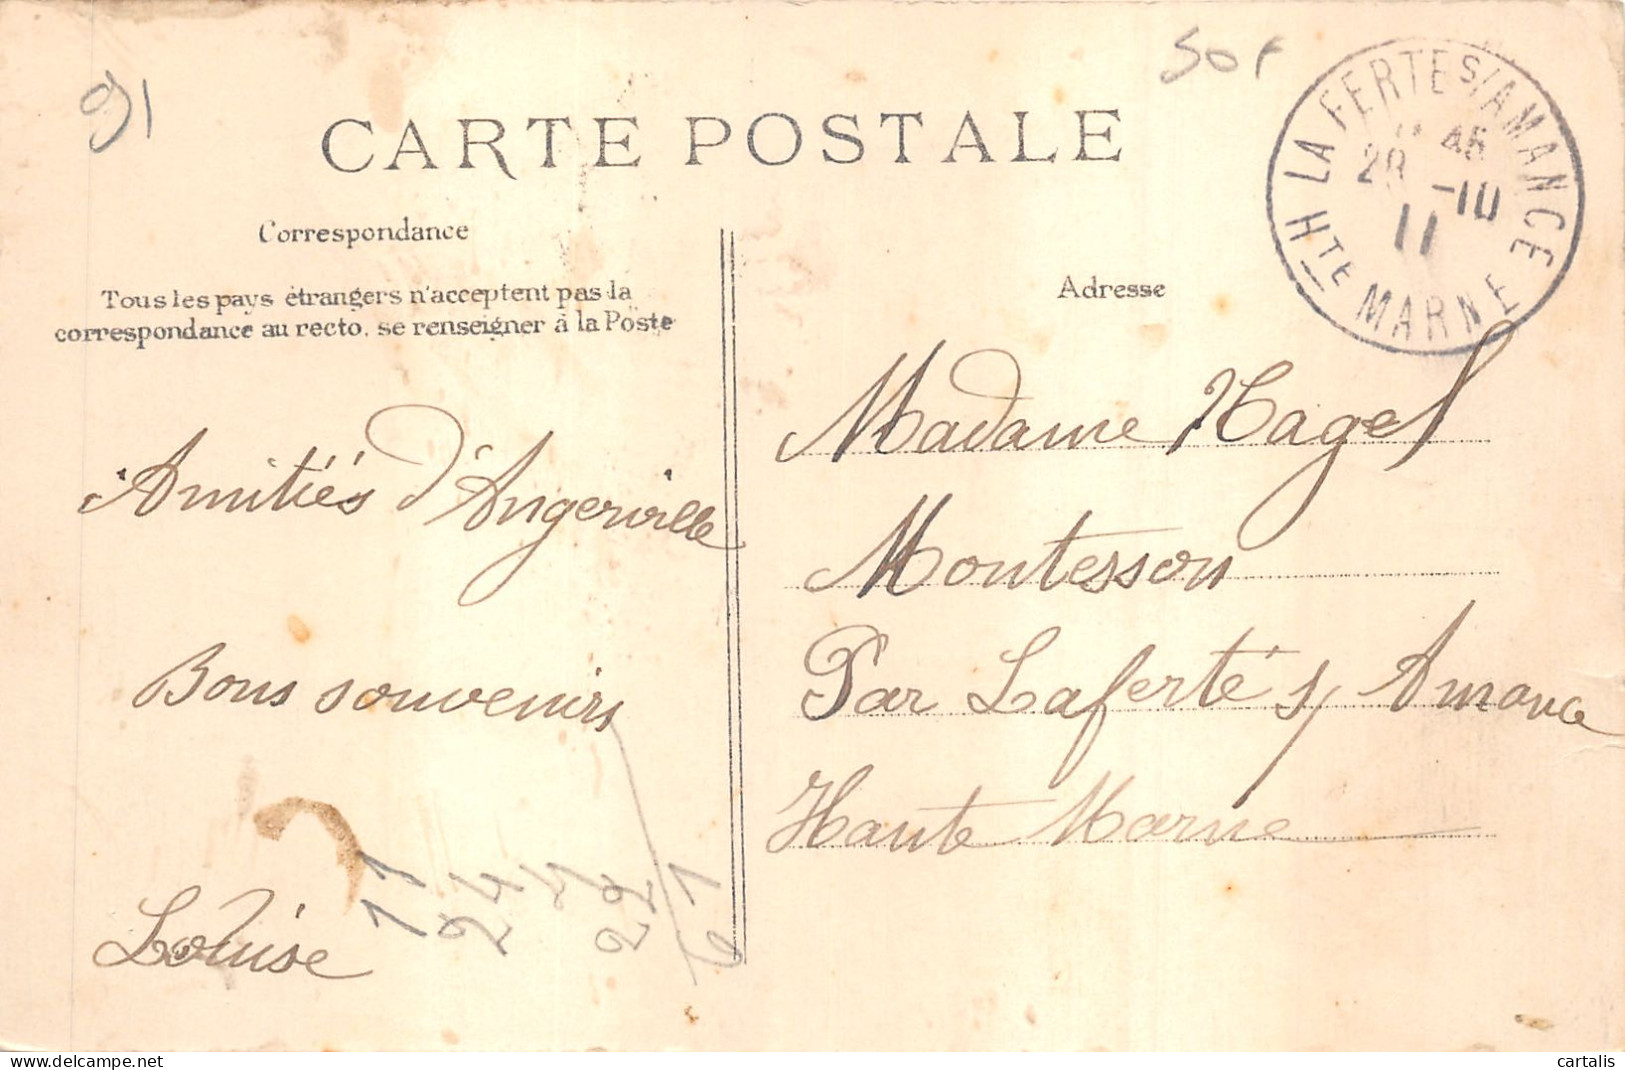 91
50 F
CARTE POSTALE
LA FERTE S/AMANCE
45
28 -10
11
Hte MARNE
Correspondance
Tous les pays étrangers n'acceptent pas la
correspondance au recto. se renseigner à la Poste
Adresse
Amitiés d'Angerville
Bons souvenirs
Louise
Madame Nagel
Montesson
Par Laferté s/ Amance
Haute Marne
11
24
4
22
61
cartalis